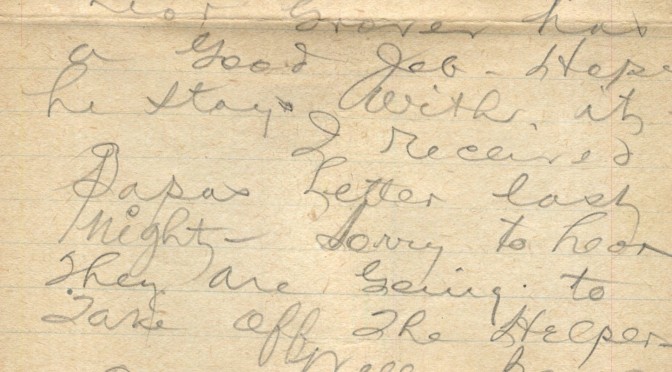 hear Grover has
a Good Job - Hope
he stays With it
I received
Papas Letter last
Night - Sorry to hear
They are Going to
Take Off The Helpers
Well